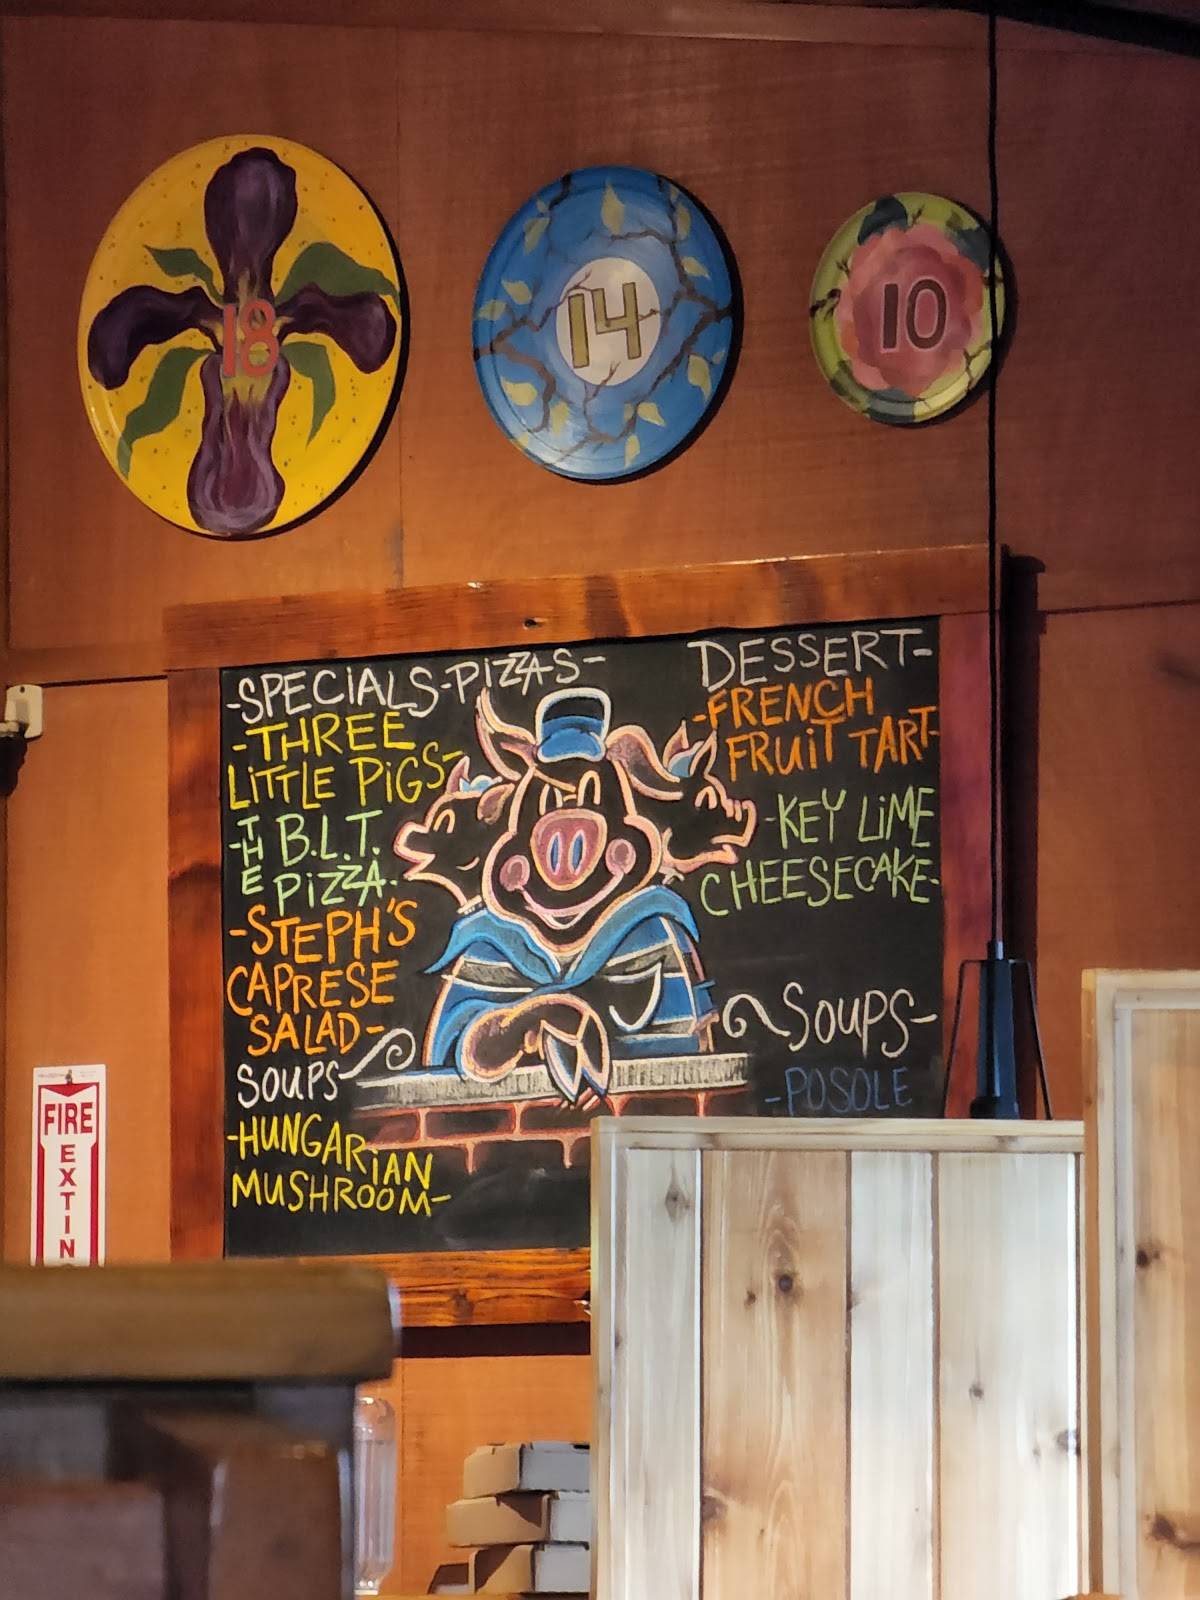 18
14
10
-SPECIALS-PIZZAS-
-THREE
LITTLE PIGS-
-THE B.L.T.
PIZZA-
-STEPH'S
CAPRESE
SALAD-
SOUPS
-HUNGARIAN
MUSHROOM-
DESSERT-
-FRENCH
FRUIT TART-
-KEY LIME
CHEESECAKE-
SOUPS-
-POSOLE
FIRE
EXTIN